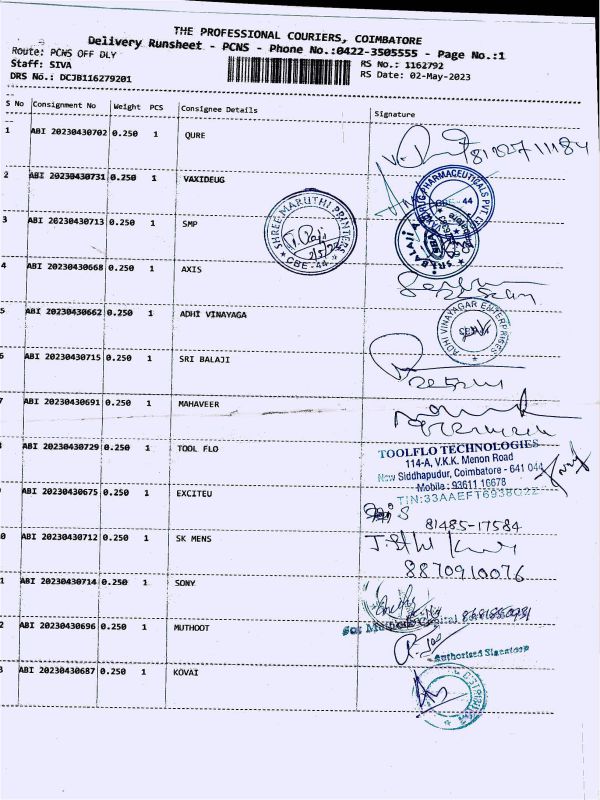 THE PROFESSIONAL COURIERS, COIMBATORE
Delivery Runsheet - PCNS - Phone No.:0422-3505555 - Page No.:1
Route: PCNS OFF DLY
Staff: SIVA
RS No.: 1162792
DRS No.: DCJB116279201
RS Date: 02-May-2023
S No Consignment No Weight PCS Consignee Details Signature
1 ABI 20230430702 0.250 1 QURE
2 ABI 20230430731 0.250 1 VAXIDEUG
3 ABI 20230430713 0.250 1 SMP
SHREE MARUTHI PRINTERS
2/5/23
CBE-44
4 ABI 20230430668 0.250 1 AXIS
5 ABI 20230430662 0.250 1 ADHI VINAYAGA
ADHI VINAYAGAR ENTERPRISES
6 ABI 20230430715 0.250 1 SRI BALAJI
7 ABI 20230430691 0.250 1 MAHAVEER
8 ABI 20230430729 0.250 1 TOOL FLO
TOOLFLO TECHNOLOGIES
114-A, V.K.K. Menon Road
New Siddhapudur, Coimbatore - 641 044
Mobile : 93611 16678
ABI 20230430675 0.250 1 EXCITEU
81485-17584
0 ABI 20230430712 0.250 1 SK MENS
8870910076
1 ABI 20230430714 0.250 1 SONY
2 ABI 20230430696 0.250 1 MUTHOOT
For Muthoot Capital
Authorised Signatory
3 ABI 20230430687 0.250 1 KOVAI